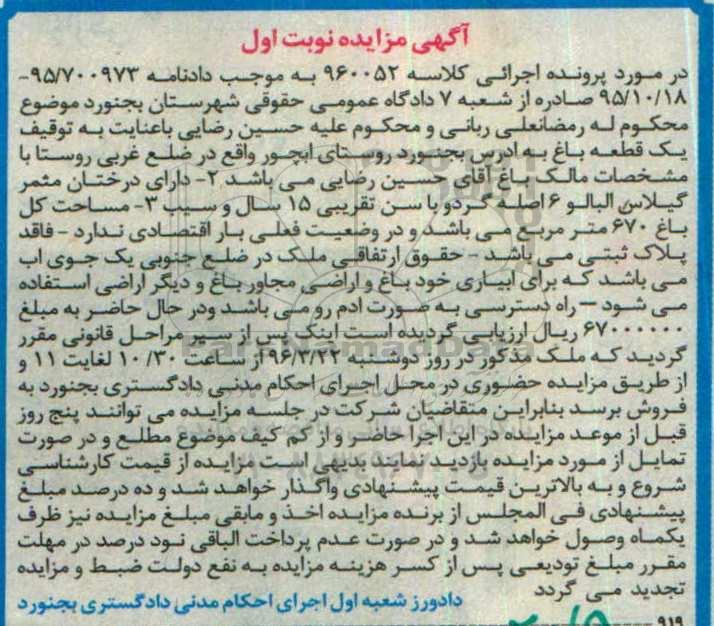 آگهی مزایده نوبت اول
در مورد پرونده اجرائی کلاسه ۹۶۰۰۵۲ به موجب دادنامه ۹۵/۷۰۰۹۷۳-
۹۵/۱۰/۱۸ صادره از شعبه ۷ دادگاه عمومی حقوقی شهرستان بجنورد موضوع
محکوم له رمضانعلی ربانی و محکوم علیه حسین رضایی باعنایت به توقیف
یک قطعه باغ به ادرس بجنورد روستای ابچور واقع در ضلع غربی روستا با
مشخصات مالک باغ آقای حسین رضایی می باشد ۲- دارای درختان مثمر
گیلاس البالو ۶ اصله گردو با سن تقریبی ۱۵ سال و سیب ۳- مساحت کل
باغ ۶۷۰ متر مربع می باشد و در وضعیت فعلی بار اقتصادی ندارد - فاقد
پلاک ثبتی می باشد - حقوق ارتفاقی ملک در ضلع جنوبی یک جوی اب
می باشد که برای ابیاری خود باغ و اراضی مجاور باغ و دیگر اراضی استفاده
می شود – راه دسترسی به صورت ادم رو می باشد ودر حال حاضر به مبلغ
۶۷۰۰۰۰۰۰ ریال ارزیابی گردیده است اینک پس از سیر مراحل قانونی مقرر
گردید که ملک مذکور در روز دوشنبه ۹۶/۳/۲۲ از ساعت ۱۰/۳۰ لغایت ۱۱ و
از طریق مزایده حضوری در محل اجرای احکام مدنی دادگستری بجنورد به
فروش برسد بنابراین متقاضیان شرکت در جلسه مزایده می توانند پنج روز
قبل از موعد مزایده در این اجرا حاضر و از کم کیف موضوع مطلع و در صورت
تمایل از مورد مزایده بازدید نمایند بدیهی است مزایده از قیمت کارشناسی
شروع و به بالاترین قیمت پیشنهادی واگذار خواهد شد و ده درصد مبلغ
پیشنهادی فی المجلس از برنده مزایده اخذ و مابقی مبلغ مزایده نیز ظرف
یکماه وصول خواهد شد و در صورت عدم پرداخت الباقی نود درصد در مهلت
مقرر مبلغ تودیعی پس از کسر هزینه مزایده به نفع دولت ضبط و مزایده
تجدید می گردد
دادورز شعبه اول اجرای احکام مدنی دادگستری بجنورد
۹۱۹